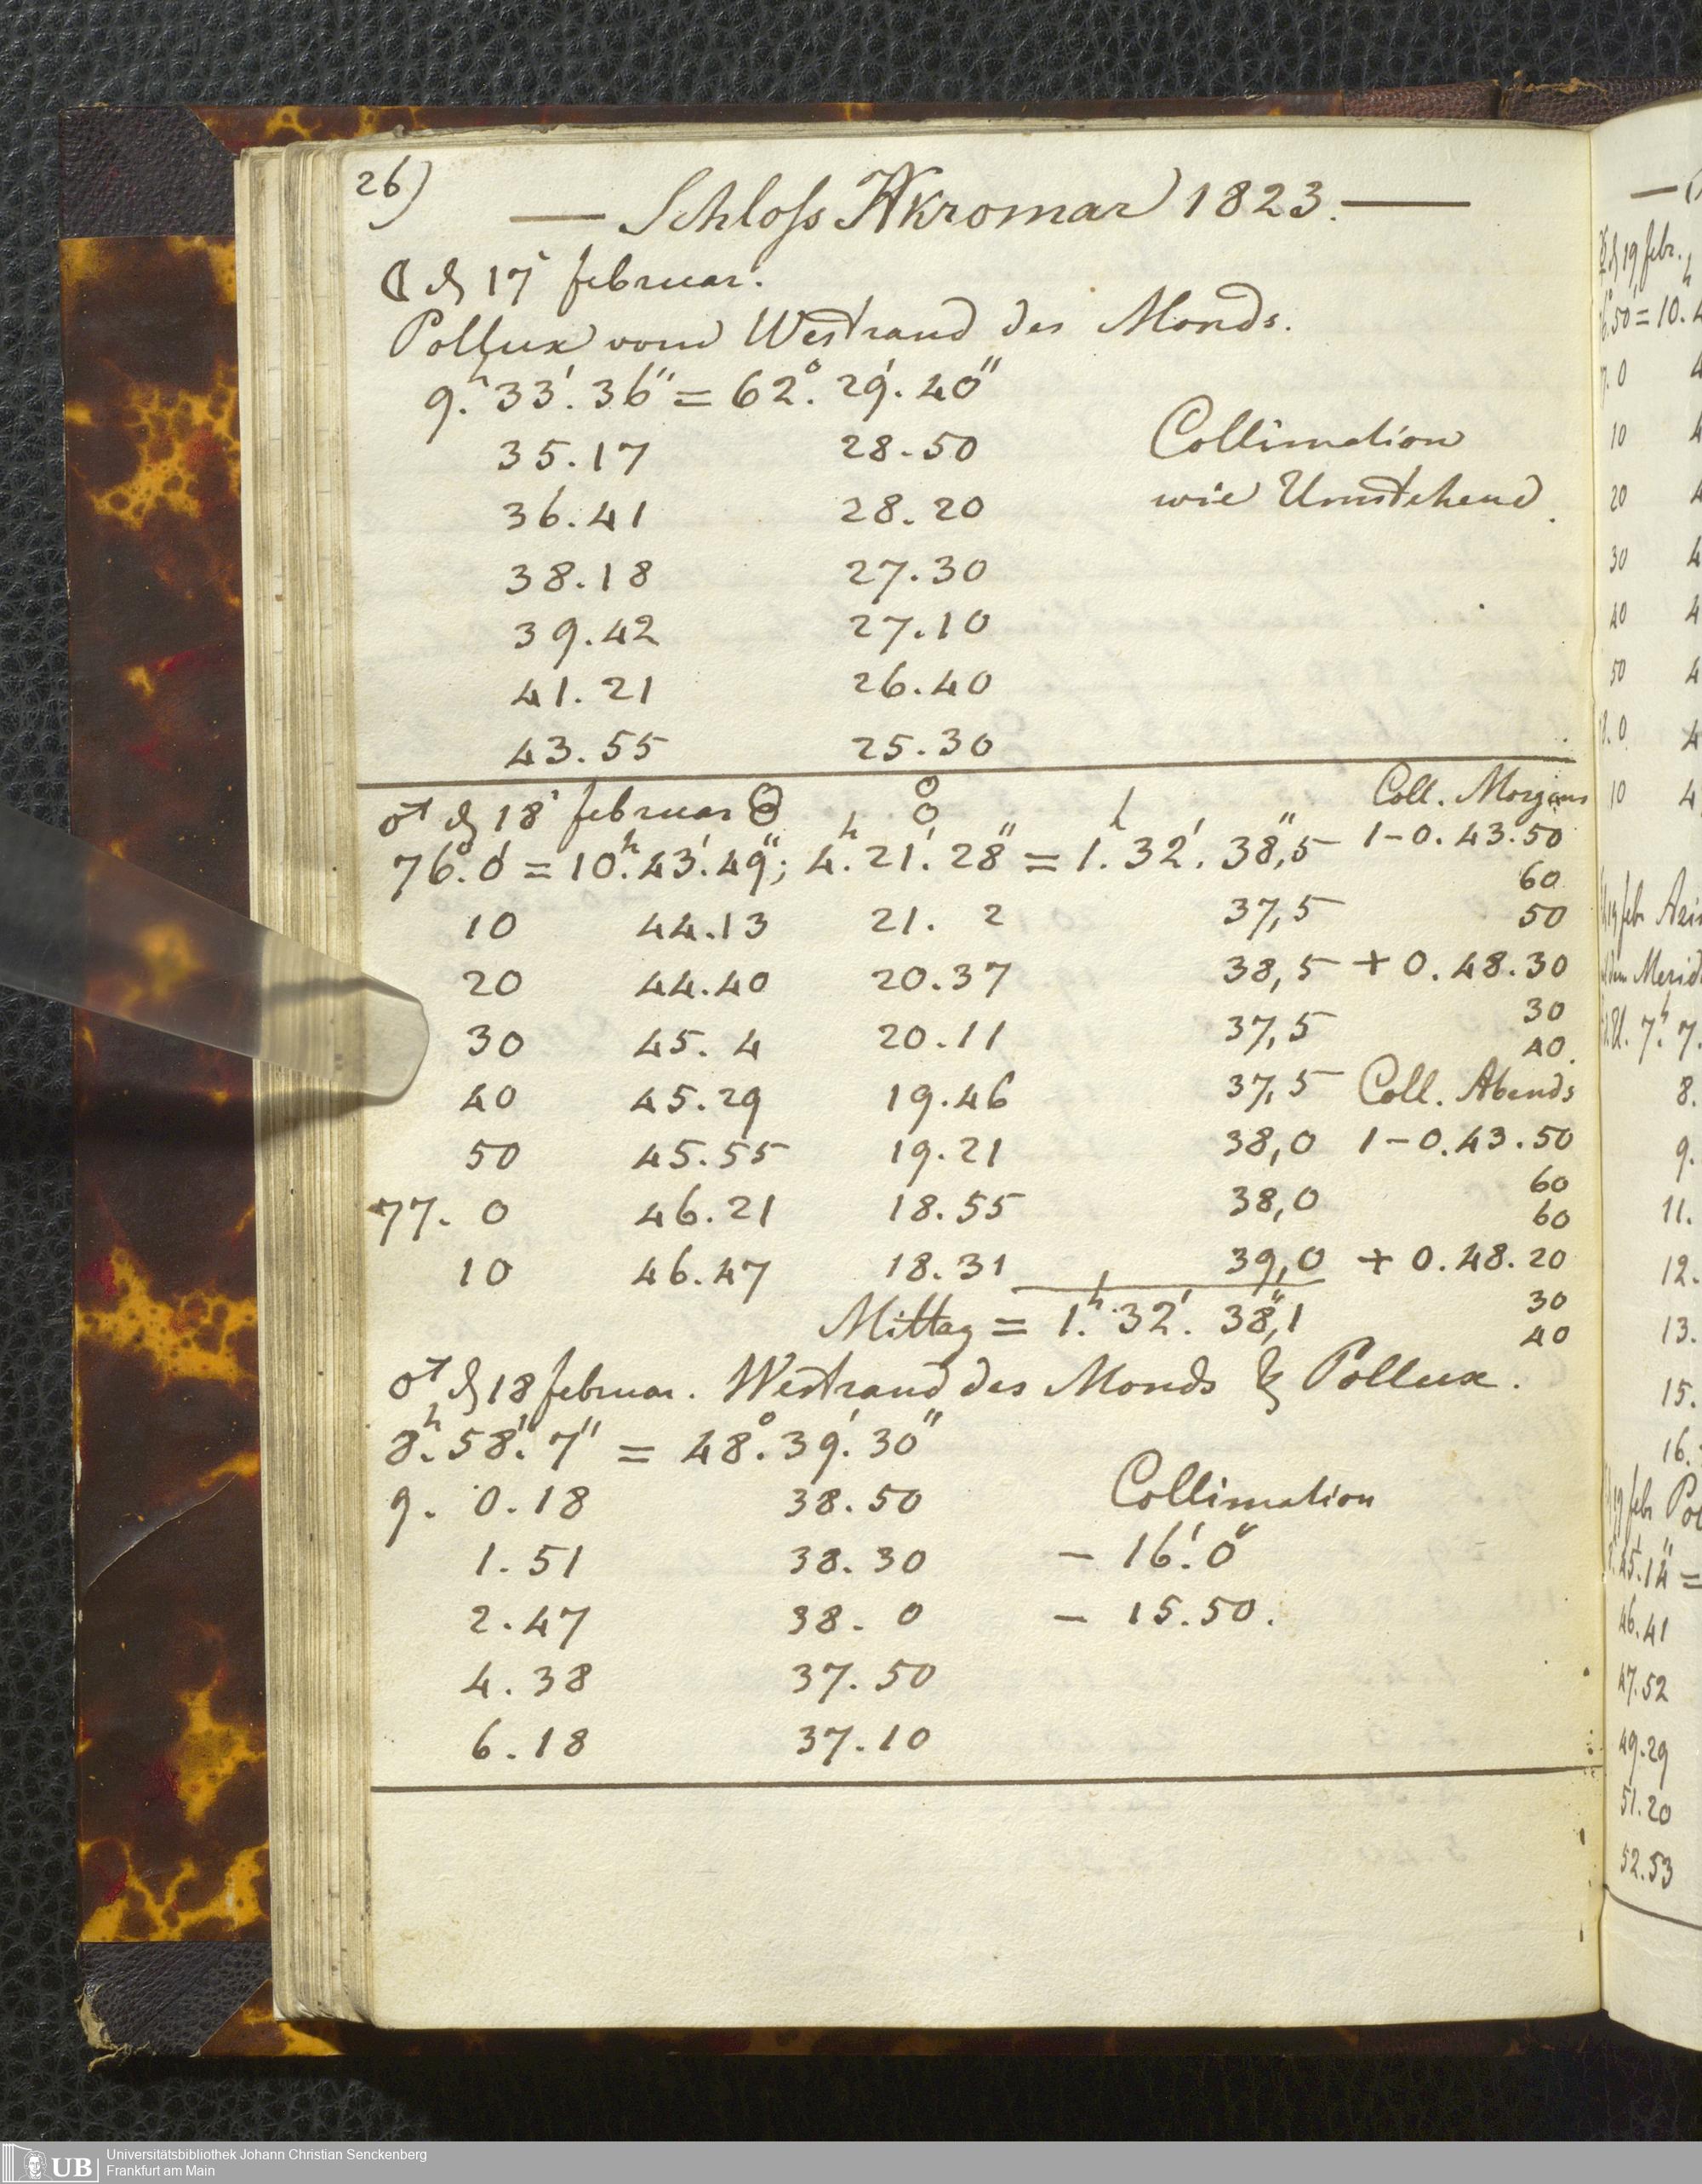 26)
— Schloss Akromar 1823. —
☾ d 17' februar.
Pollux vom Westrand des Monds.
9.ʰ 33'. 36" = 62°. 29'. 40"
35.17 28.50 Collimation
36.41 28.20 wie Umstehend.
38.18 27.30
39.42 27.10
41.21 26.40
43.55 25.30
♂ d 18' februar Coll. Morgens
76°. 0' = 10.ʰ 43'. 49"; 4.ʰ 21'. 28" = 1.ʰ 32'. 38",5 1-0.43.50
60
10 44.13 21. 2 37,5 50
20 44.40 20.37 38,5 + 0.48.30
30 45. 4 20.11 37,5 30
40.
40 45.29 19.46 37,5 Coll. Abends
50 45.55 19.21 38,0 1-0.43.50
60
77. 0 46.21 18.55 38,0 60
10 46.47 18.31 39,0 + 0.48.20
Mittag = 1.ʰ 32'. 38",1 30
40
♂ d 18 februar. Westrand des Monds & Pollux.
8.ʰ 58'. 7" = 48°. 39'. 30"
9. 0.18 38.50 Collimation
1.51 38.30 - 16'. 0"
2.47 38. 0 - 15.50.
4.38 37.50
6.18 37.10
19 febr.
50' = 10. 4
0 4
10 4
20 4
30 4
40 4
50 4
0 4
10 4
19 feb
7.ʰ 7.
8.
9.
11.
12.
13.
15.
16.
19 feb
45.14 =
46.41
47.52
49.29
51.20
52.53
UB
Universitätsbibliothek Johann Christian Senckenberg
Frankfurt am Main